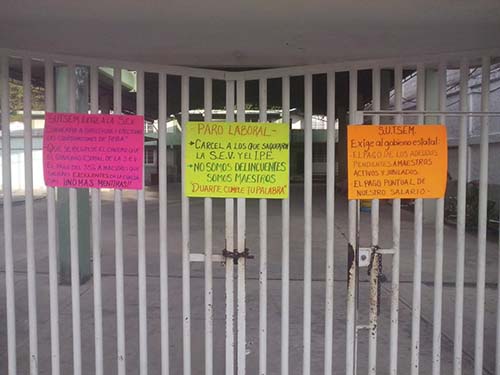 SUTSEM EXIGE A LA S.E.V
LAS CONDICIONES DE
EL GOBIERNO ESTATAL DE LA S.E.V
EL PAGO DEL A MAESTROS QUE
¡NO MAS MENTIRAS!!
- PARO LABORAL -
CARCEL A LOS QUE SAQUEARON
LA S.E.V. Y EL I.P.E
NO SOMOS DELINCUENTES
SOMOS MAESTROS
"DUARTE CUMPLE TU PALABRA"
S.U.T.S.E.M.
Exige al gobierno estatal:
EL PAGO DE LOS ADEUDOS
PENDIENTES A MAESTROS
ACTIVOS Y JUBILADOS.
EL PAGO PUNTUAL DE
NUESTRO SALARIO